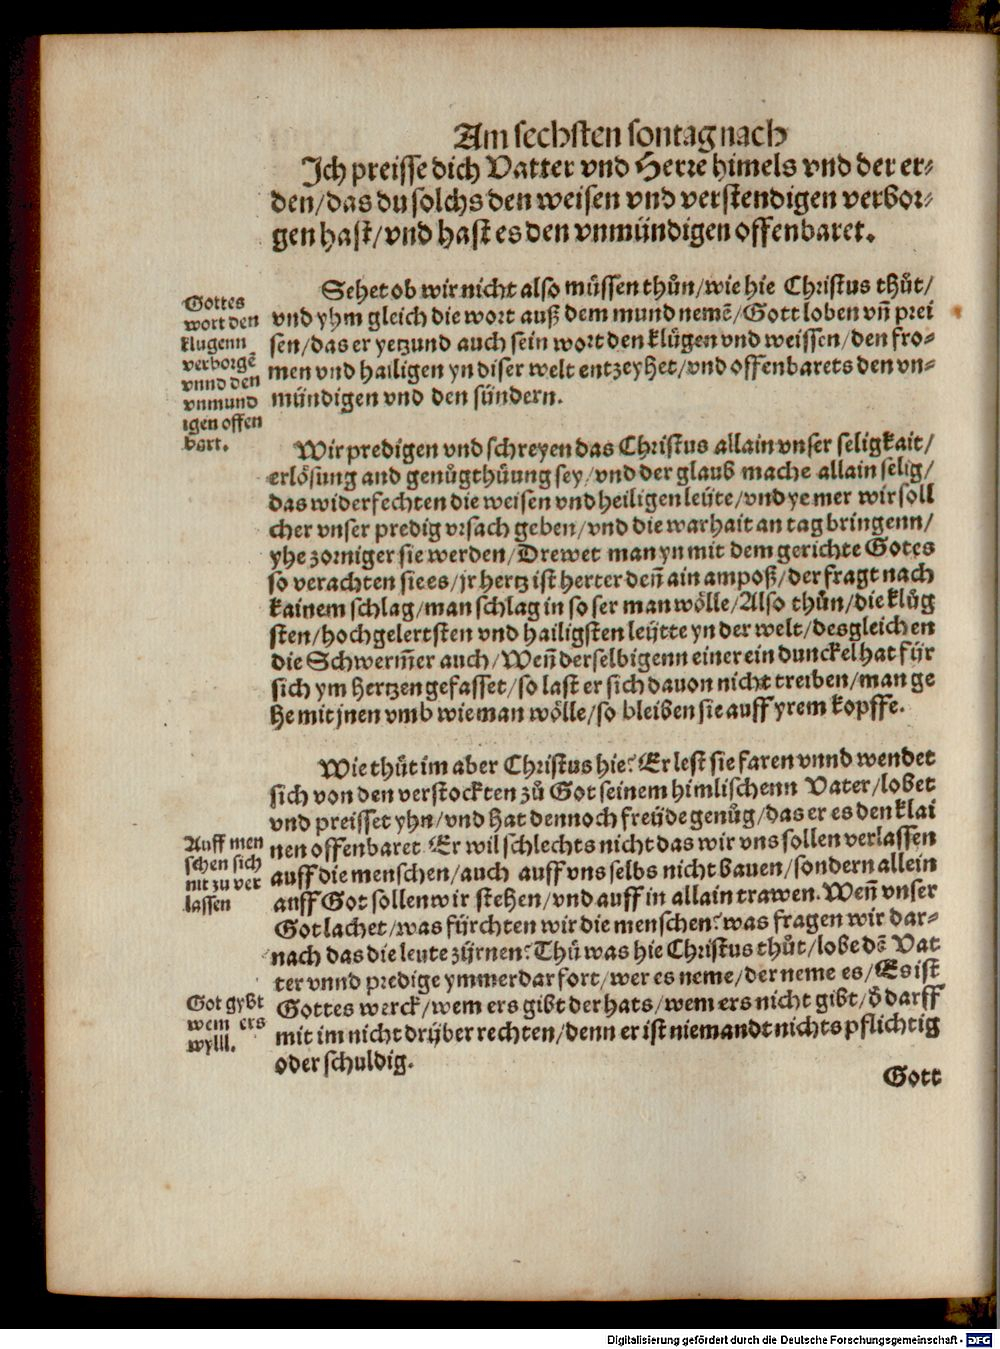 Am sechsten sontag nach
Ich preisse dich Vatter vnd Herre himels vnd der er-
den/das du solchs den weisen vnd verstendigen verbor-
gen hast/vnd hast es den vnmündigen offenbaret.
Sehet ob wir nicht also müssen thůn/wie hie Christus thůt/
vnd yhm gleich die wort auß dem mund nemē/Gott loben vñ prei
sen/das er yetzund auch sein wort den klůgen vnd weissen/den fro-
men vnd hailigen yn diser welt entzeyhet/vnd offenbarets den vn-
mündigen vnd den sündern.
Gottes
wort den
klugenn
verborgē
vnnd den
vnmund
igen offen
bart.
Wir predigen vnd schreyen das Christus allain vnser seligkait/
erlösung and genůgthůung sey/vnd der glaub mache allain selig/
das widerfechten die weisen vnd heiligen leüte/vnd ye mer wir soll
cher vnser predig vrsach geben/vnd die warhait an tag bringenn/
yhe zorniger sie werden/Drewet man yn mit dem gerichte Gotes
so verachten sie es/jr hertz ist herter deñ ain ampoß/der fragt nach
kainem schlag/man schlag in so ser man wölle/Also thůn/die klůg
sten/hochgelertsten vnd hailigsten leÿtte yn der welt/desgleichen
die Schwerm̃er auch/Weñ derselbigenn einer ein dunckel hat fÿr
sich ym hertzen gefasset/so last er sich dauon nicht treiben/man ge
he mit jnen vmb wie man wölle/so bleiben sie auff yrem kopffe.
Wie thůt im aber Christus hie? Er lest sie faren vnnd wendet
sich von den verstockten zů Got seinem himlischenn Vater/lobet
vnd preisset yhn/vnd hat dennoch freÿde genůg/das er es den klai
nen offenbaret Er wil schlechts nicht das wir vns sollen verlassen
auff die menschen/auch auff vns selbs nicht bauen/sondern allein
auff Got sollen wir stehen/vnd auff in allain trawen. Weñ vnser
Got lachet/was fÿrchten wir die menschen? was fragen wir dar-
nach das die leute zÿrnen? Thů was hie Christus thůt/lobe dē Vat
ter vnnd predige ymmerdar fort/wer es neme/der neme es/Es ist
Gottes werck/wem ers gibt der hats/wem ers nicht gibt/ď darff
mit im nicht drÿber rechten/denn er ist niemandt nichts pflichtig
oder schuldig.
Auff men
schen sich
nit zu ver
lassen
Got gybt
wem ers
wylll.
Gott
Digitalisierung gefördert durch die Deutsche Forschungsgemeinschaft - DFG